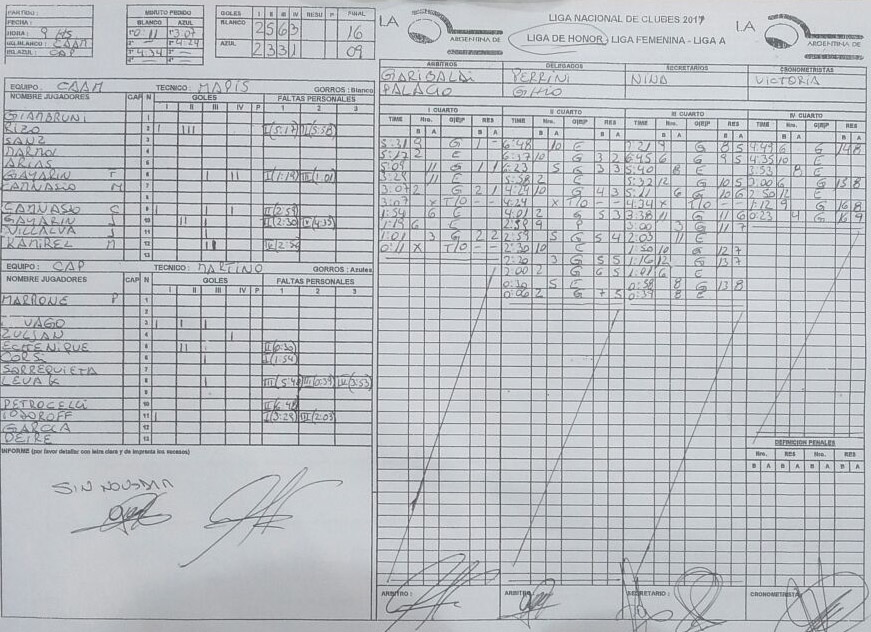 PARTIDO:
FECHA:
HORA: 9 HS
EQ.BLANCO: CAAM
EQ.AZUL: CAP
MINUTO PEDIDO
BLANCO AZUL
1º 0:11 1º 3:07
2º 2º 4:24
3º 4:34 3º
GOLES I II III IV RESU P FINAL
BLANCO 2 5 6 3 16
AZUL 2 3 3 1 09
LA ARGENTINA DE
LIGA NACIONAL DE CLUBES 2017
LIGA DE HONOR, LIGA FEMENINA - LIGA A
LA ARGENTINA DE
ARBITROS DELEGADOS SECRETARIOS CRONOMETRISTAS
GARIBALDI PERRINI NINA VICTORIA
PALACIO GHIO
EQUIPO: CAAM TECNICO: MAPIS GORROS: Blanco
NOMBRE JUGADORES CAP N GOLES FALTAS PERSONALES
I II III IV P 1 2 3
GIAMBRUNI 1
RIZO 2 I III I(5:17) II(5:58)
SANZ 3
MARMOL 4
ARIAS 5
GAYARIN T 6 I II I(1:19) III(1:01)
CAMNASIO M 7
8
CAMNASIO C 9
GAYARIN J 10
VILLALVA J 11
RAMIREZ M 12
13
EQUIPO: CAP TECNICO: MARTINO GORROS: Azules
NOMBRE JUGADORES CAP N GOLES FALTAS PERSONALES
I II III IV P 1 2 3
MARRONE P 1
2
VAGO 3 I I
ZULIAN 4 I
ECHENIQUE 5 II
6 I(1:54)
SORREQUIETA 7
LEVAK 8 III(5:40) III(0:39) IV(3:53)
9
PETROCELLI 10 II(6:48)
TODOROFF 11 I I(5:29) III(2:03)
GARCIA 12
DEIRE 13
INFORME (por favor detallar con letra clara y de imprenta los sucesos)
SIN NOVEDAD
I CUARTO II CUARTO III CUARTO IV CUARTO
TIME Nro. G|E|P RES TIME Nro. G|E|P RES TIME Nro. G|E|P RES TIME Nro. G|E|P RES
B A B A B A B A B A B A B A B A
5:31 9 G 1 - 6:48 10 E 7:21 9 G 8 5 4:49 6 G 14 8
5:17 2 E 6:37 10 G 3 2 6:45 6 G 9 5 4:35 10 E
5:09 11 G 1 1 6:23 5 G 3 3 5:40 8 E 3:53 8 E
5:29 11 E 5:58 2 E 5:32 12 G 10 5 3:00 6 G 15 8
3:07 2 G 2 1 4:29 10 G 4 3 5:11 6 G 10 6 2:50 12 E
3:07 X T/O - - 4:24 X T/O - - 4:34 X T/O - - 1:12 9 G 16 8
1:54 6 E 4:01 2 G 5 3 3:38 11 G 11 6 0:23 4 G 16 9
1:19 6 E 2:59 9 P 3:00 3 G 11 7
1:01 3 G 2 2 2:59 5 G 5 4 2:03 11 E
0:11 X T/O - - 2:30 10 E 1:50 10 G 12 7
2:20 3 G 5 5 1:16 12 G 13 7
2:00 2 G 6 5 1:01 6 E
0:30 5 E 0:58 8 G 13 8
0:06 2 G 7 5 0:39 8 E
DEFINICION PENALES
Nro. RES Nro. RES
B A B A B A B A
ARBITRO: ARBITRO: SECRETARIO: CRONOMETRISTA: